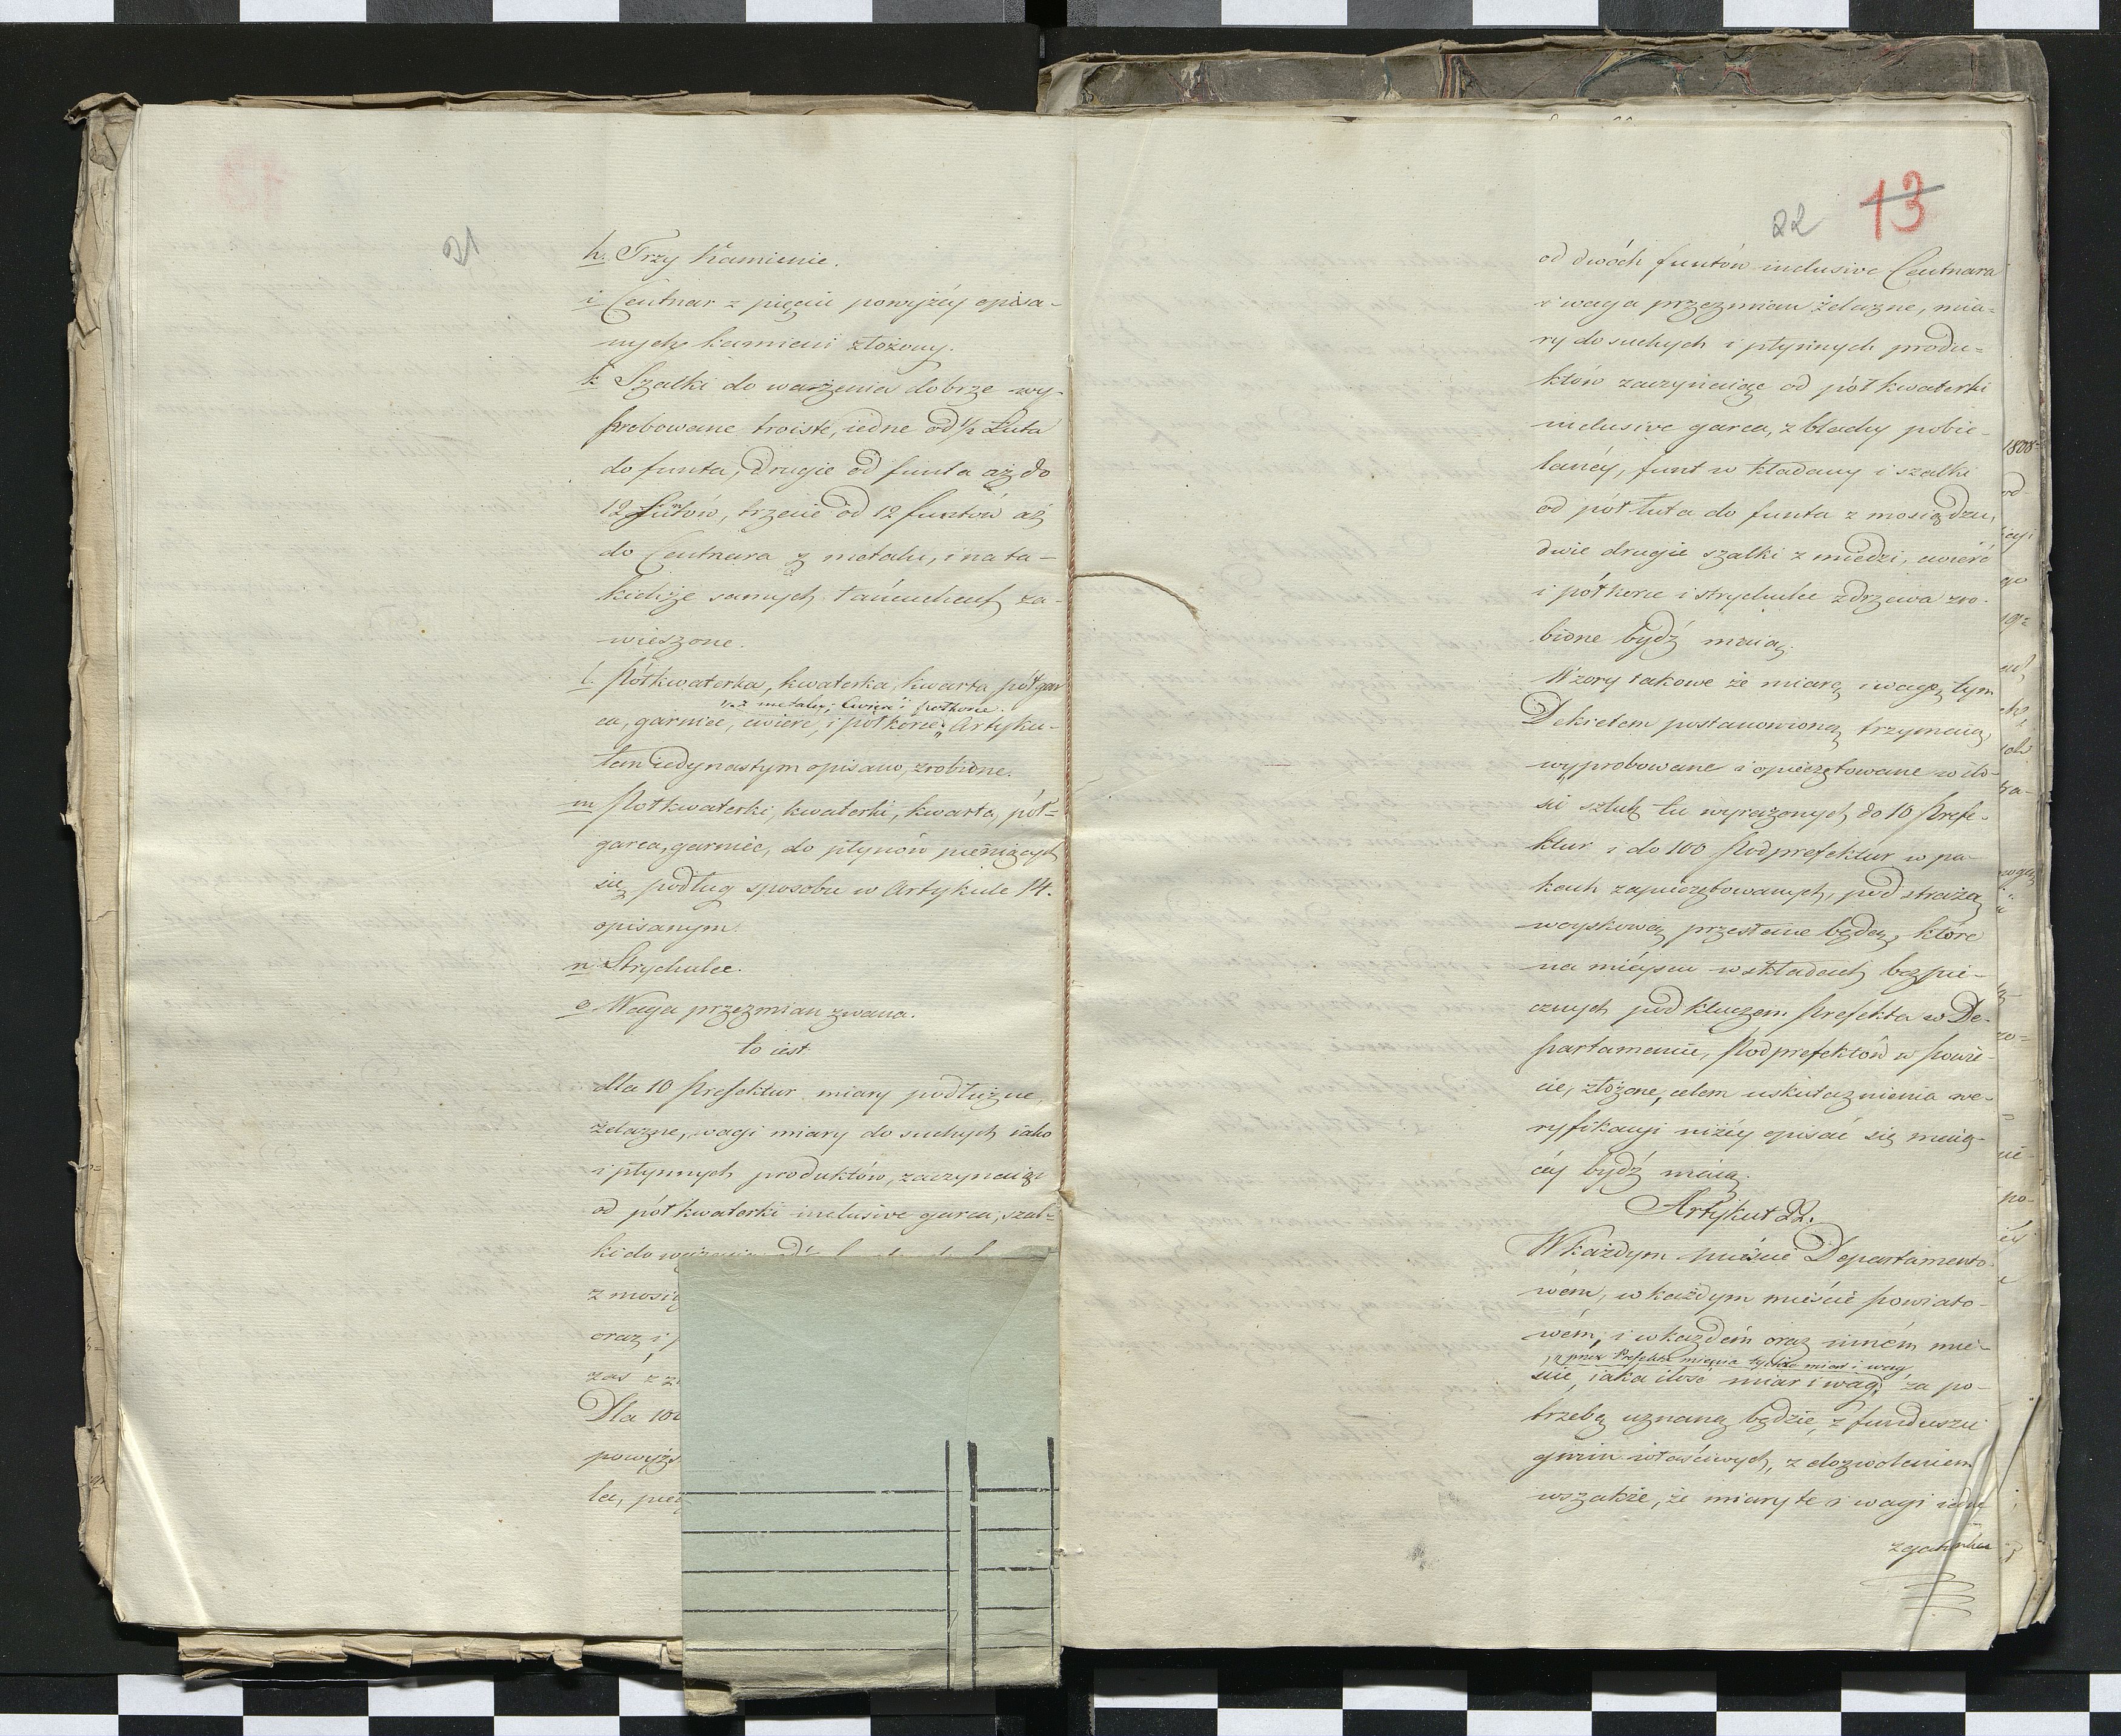 21
h. Trzy Kamienie.
i Centnar z pięciu powyżéy opisa-
nych kamieni złożony.
k Szalki do ważenia dobrze wy-
probowane troiste, iedne od ½ Łuta
do funta, drugie od funta aż do
12 funtów, trzecie od 12 funtów aż
do Centnara z metalu, i na ta-
kichże samych łańcuchach za-
wieszone.
l. Półkwaterka, kwaterka, kwarta półgar
z metalu; ćwierć i półkorce.
ca, garniec, ćwierć, i półkorzec Artyku-
łem iedynastym opisano, zrobione.
m Połkwaterki, kwaterki, kwarta, pół=
garca, garniec, do płynów pieniących
się podług sposobu w Artykule 14.
opisanym.
n Strychulce.
o Waga przezmian zwana.
to iest
dla 10 Prefektur miary podłużne,
żelazne, wagi miary do suchych iako
i płynnych produktów, zaczynaiąc
od pół kwaterki inclusive garca, szal-
ki do
z mosią
oraz i
zaś z
Dla 100
powyżs
la,
22 13
od dwóch funtów inclusive Centnara
i waga przezmian żelazne, mia-
ry do suchych i płynnych produ=
któw zaczynaiąc od pół kwaterki
inclusive garca, z blachy pobie-
lanéy, funt w kładany i szalki
od pół łuta do funta z mosiądzu,
dwie drugie szalki z miedzi, cwierć
i półkorce i strychulce z drzewa zro-
bione bydź maią.
Wzory takowe że miarę i wagę tym
Dekretem postanowioną trzymaią,
wyprobowane i opieczętowane w ilo-
ści sztuk tu wyrażonych do 10 Prefe-
ktur i do 100 Podprefektur w pa-
kach zapieczętowanych, pod strażą
woyskową przesłane będą, które
na mieyscu w składach bezpie-
cznych pod kluczem Prefekta w De-
partamencie, Podprefektów w powie-
cie, złożone, celem uskutecznienia we-
ryfikacyi niżéy opisać się maią-
céy bydź maią.
Artykuł 22.
W każdym mieście Departamento-
wém, w każdym mieście powiato-
wém, i w każdém oraz inném mie-
przez Prefekta mienia tychże miar i wag
ście, iaka ilość miar i wag, za po-
trzebą uznaną będzie, z funduszu
gmin właściwych, z dozwoleniem
wszakże, że miary te i wagi iedne